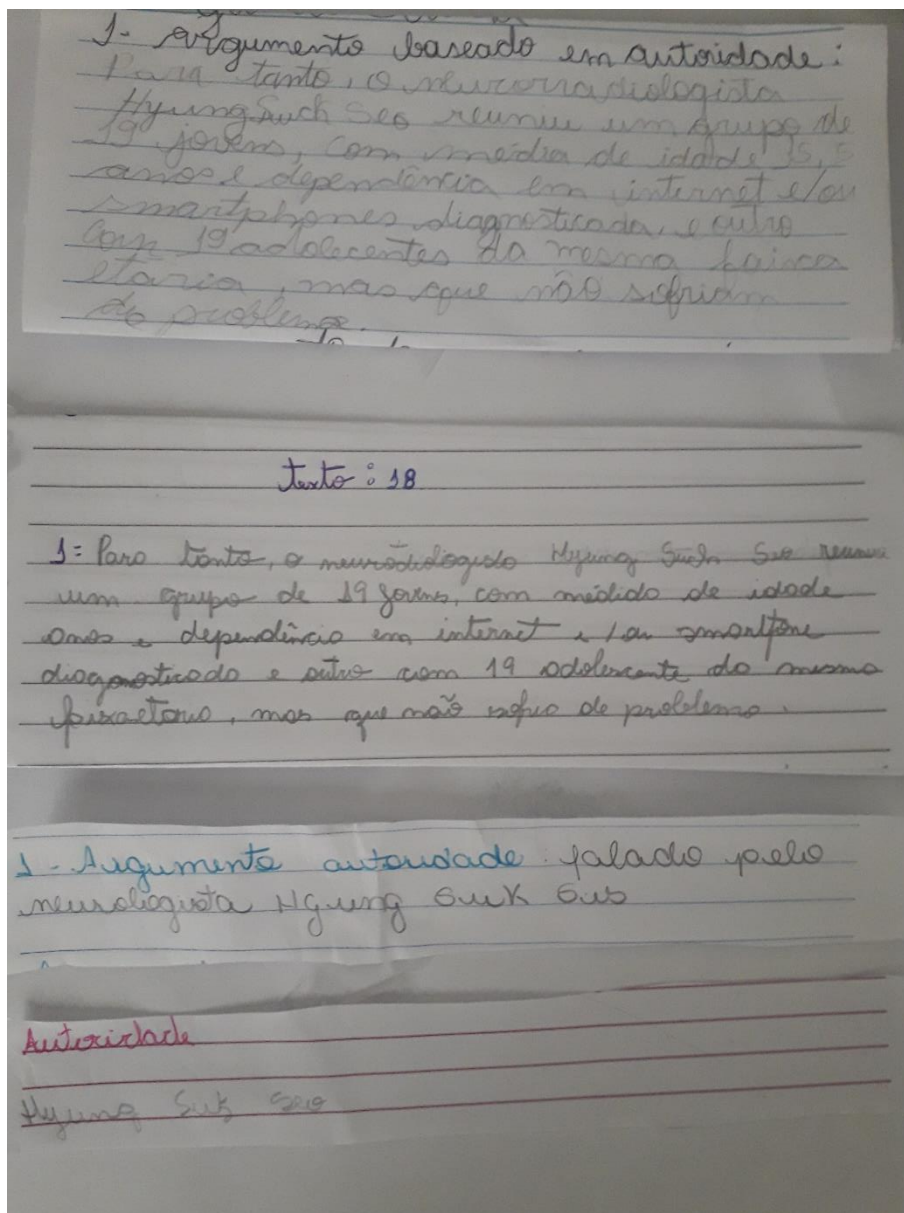 1- Argumento baseado em autoridade:
Para tanto, o neurorradiologista
Hyung Suck Seo reuniu um grupo de
19 jovens, com média de idade 15,5
anos e dependência em internet e/ou
smartphones diagnosticada, e outro
com 19 adolecentes da mesma faixa
etária, mas que não sofriam
do problema.
texto: 18
1= Para tanto, o Hyung Such Seo reuniu
um grupo de 19 jovens, com médido de idade
anos e dependêncio em internet e/ou smartfone
diagonosticado e outro com 19 adolescente da mesma
faixaetario, mas que não de problema.
1- Augumento autoridade falado pelo
neurologista Hyung Suk Suo
Autoridade
Hyung Suk Seo